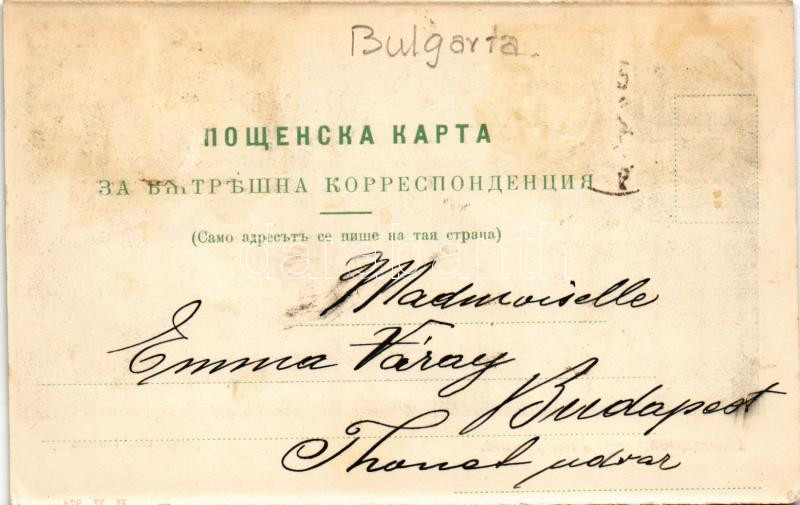 Bulgaria.
ПОЩЕНСКА КАРТА
ЗА ВѪТРѢШНА КОРРЕСПОНДЕНЦИЯ
(Само адресътъ се пише на тая страна)
Mademoiselle
Emma Váray
Budapest
Thonet udvar